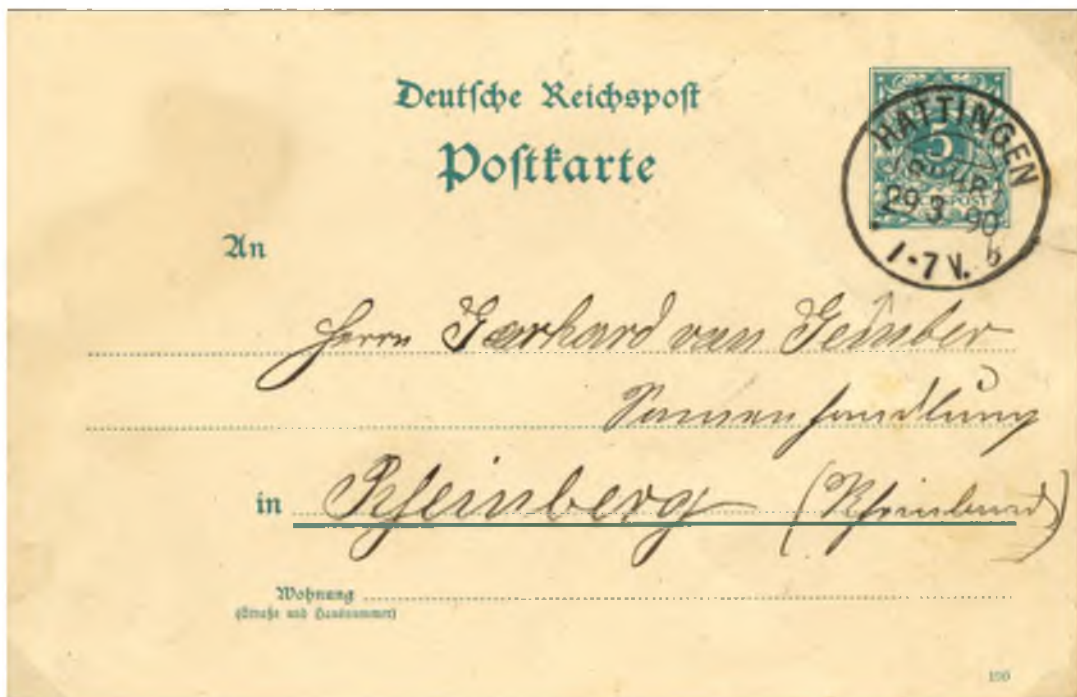 Deutsche Reichspost
Postkarte
5
REICHSPOST
HATTINGEN
(RUHR)
29 3 90
1-7 V. b
An
Herrn Gerhard van
Samenhandlung
in Rheinberg (Rheinland)
Wohnung
(Straße und Hausnummer)
190